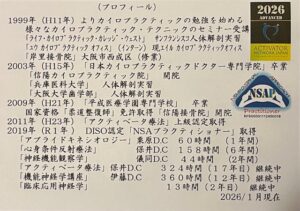 (プロフィール)
1999年(H11年)よりカイロプラクティックの勉強を始める
様々なカイロプラクティック・テクニックのセミナー受講
「ライフ・カイロプラクティック・カレッジ・ウエスト」 サンフランシスコ人体解剖実習
「ユウ カイロプラクティック オフィス」(インターン) 現エイル カイロプラクティックオフィス
「岸里接骨院」 大阪市西成区(修業)
2003年(H15年)「日本カイロプラクティックドクター専門学院」卒業
「信陽カイロプラクティック院」 開院
「兵庫医科大学」 人体解剖実習
「大阪大学歯学部」 人体解剖実習
2009年(H21年)「平成医療学園専門学校」 卒業
国家資格「柔道整復師」免許取得「信陽接骨院」開院
2011年(H23年)「アクティベータ療法」上級認定取得
2019年(R1年) DISO認定「NSAプラクティショナー」取得
「アプライドキネシオロジー」 栗原D.C 60時間(1年間)
「心身条件反射療法」 保井D.C 158時間(6年間)
「神経機能観察学」 儀同D.C 44時間(2年間)
「アクティベータ療法」保井D.C 324時間(17年目)継続中
「機能神経学講座」 伊藤D.C 360時間(12年目)継続中
「臨床応用神経学」 13時間(2年目)継続中
2026/1月現在
2026
ADVANCED
ACTIVATOR
NETWORK JAPAN
NSA
Practitioner